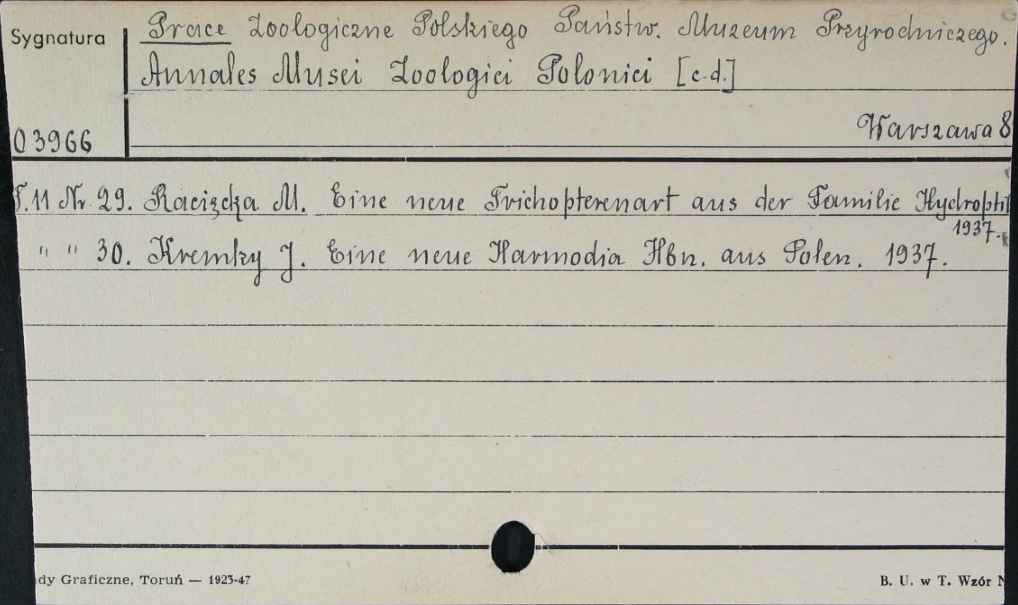 Sygnatura
Prace Zoologiczne Polskiego Państw. Muzeum Przyrodniczego.
Annales Musei Zoologici Polonici [c.d.]
03966
Warszawa 8
T.11 Nr. 29. Racięcka M. Eine neue Trichopterenart aus der Familie Hydroptil
1937.
" " 30. Kremky J. Eine neue Harmodia Hbn. aus Polen. 1937.
dy Graficzne, Toruń — 1923-47
B. U. w T. Wzór N